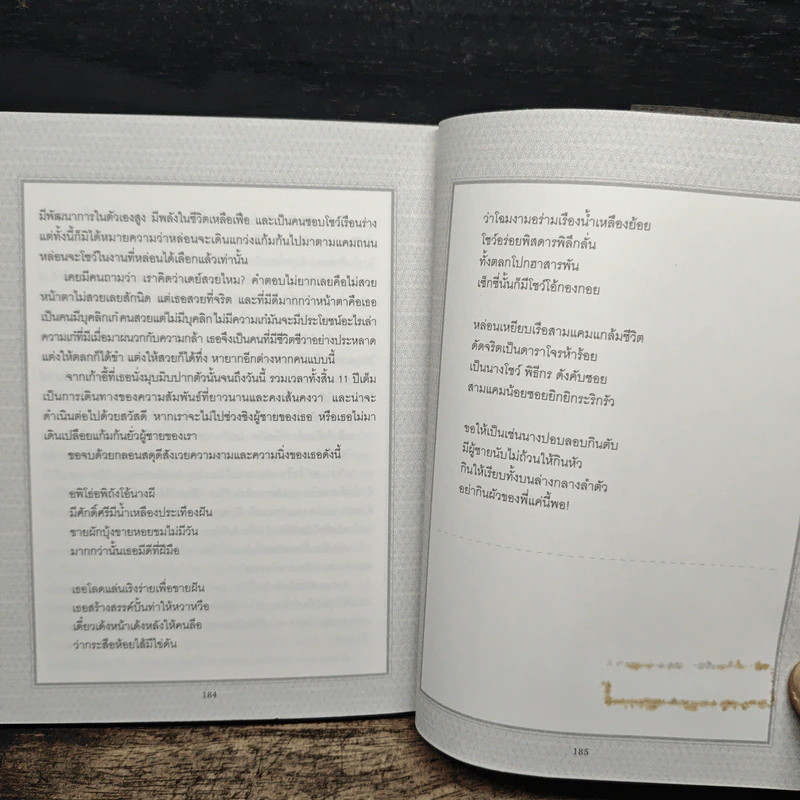 มีพัฒนาการในตัวเองสูง มีพลังในชีวิตเหลือเฟือ และเป็นคนชอบโชว์เรือนร่าง
แต่ทั้งนี้ก็มิได้หมายความว่าหล่อนจะเดินแกว่งแก้มก้นไปมาตามแคมถนน
หล่อนจะโชว์ในงานที่หล่อนได้เลือกแล้วเท่านั้น
เคยมีคนถามว่า เราคิดว่าเดย์สวยไหม? คำตอบไม่ยากเลยคือไม่สวย
หน้าตาไม่สวยเลยสักนิด แต่เธอสวยที่จริต และที่มีดีมากกว่าหน้าตาคือเธอ
เป็นคนมีบุคลิกเก๋ คนสวยแต่ไม่มีบุคลิก ไม่มีความเก๋มันจะมีประโยชน์อะไรเล่า
ความเก๋ที่มีเมื่อมาผนวกกับความกล้า เธอจึงเป็นคนที่มีชีวิตชีวาอย่างประหลาด
แต่งให้ตลกก็ได้ขำ แต่งให้สวยก็ได้ทึ่ง หายากอีกต่างหากคนแบบนี้
จากเก้าอี้ที่เธอนั่งมุบมิบปากตัวนั้นจนถึงวันนี้ รวมเวลาทั้งสิ้น 11 ปีเต็ม
เป็นการเดินทางของความสัมพันธ์ที่ยาวนานและคงเส้นคงวา และน่าจะ
ดำเนินต่อไปด้วยสวัสดี หากเราจะไม่ไปช่วงชิงผู้ชายของเธอ หรือเธอไม่มา
เดินเปลือยแก้มก้นยั่วผู้ชายของเรา
ขอจบด้วยกลอนสดุดีสังเวยความงามและความนิ่งของเธอดังนี้
อพิโธ่อพิถังโอ้นางผี
มีศักดิ์ศรีมีน้ำเหลืองประเทืองฝัน
ขายผักบุ้งขายหอยขมไม่มีวัน
มากกว่านั้นเธอมีดีที่ฝีมือ
เธอโลดแล่นเริงร่ายเพื่อขายฝัน
เธอสร้างสรรค์ปั้นท่าให้หวาหวือ
เดี๋ยวเด้งหน้าเด้งหลังให้คนลือ
ว่ากระสือห้อยไส้มีไข่ดัน
184
ว่าโฉมงามอร่ามเรืองน้ำเหลืองย้อย
โชว์อร่อยพิสดารพิลึกลั่น
ทั้งตลกโปกฮาสารพัน
เซ็กซี่นั้นก็มีโชว์โอ้กองกอย
หล่อนเหยียบเรือสามแคมแกล้มชีวิต
ดัดจริตเป็นดาราโจรห้าร้อย
เป็นนางโชว์ พิธีกร ดังคับซอย
สามแคมน้อยซอยยิกยิกระริกรัว
ขอให้เป็นเช่นนางปอบลอบกินตับ
มีผู้ชายนับไม่ถ้วนให้กินหัว
กินให้เรียบทั้งบนล่างกลางลำตัว
อย่ากินผัวของพี่แค่นี้พอ!
185